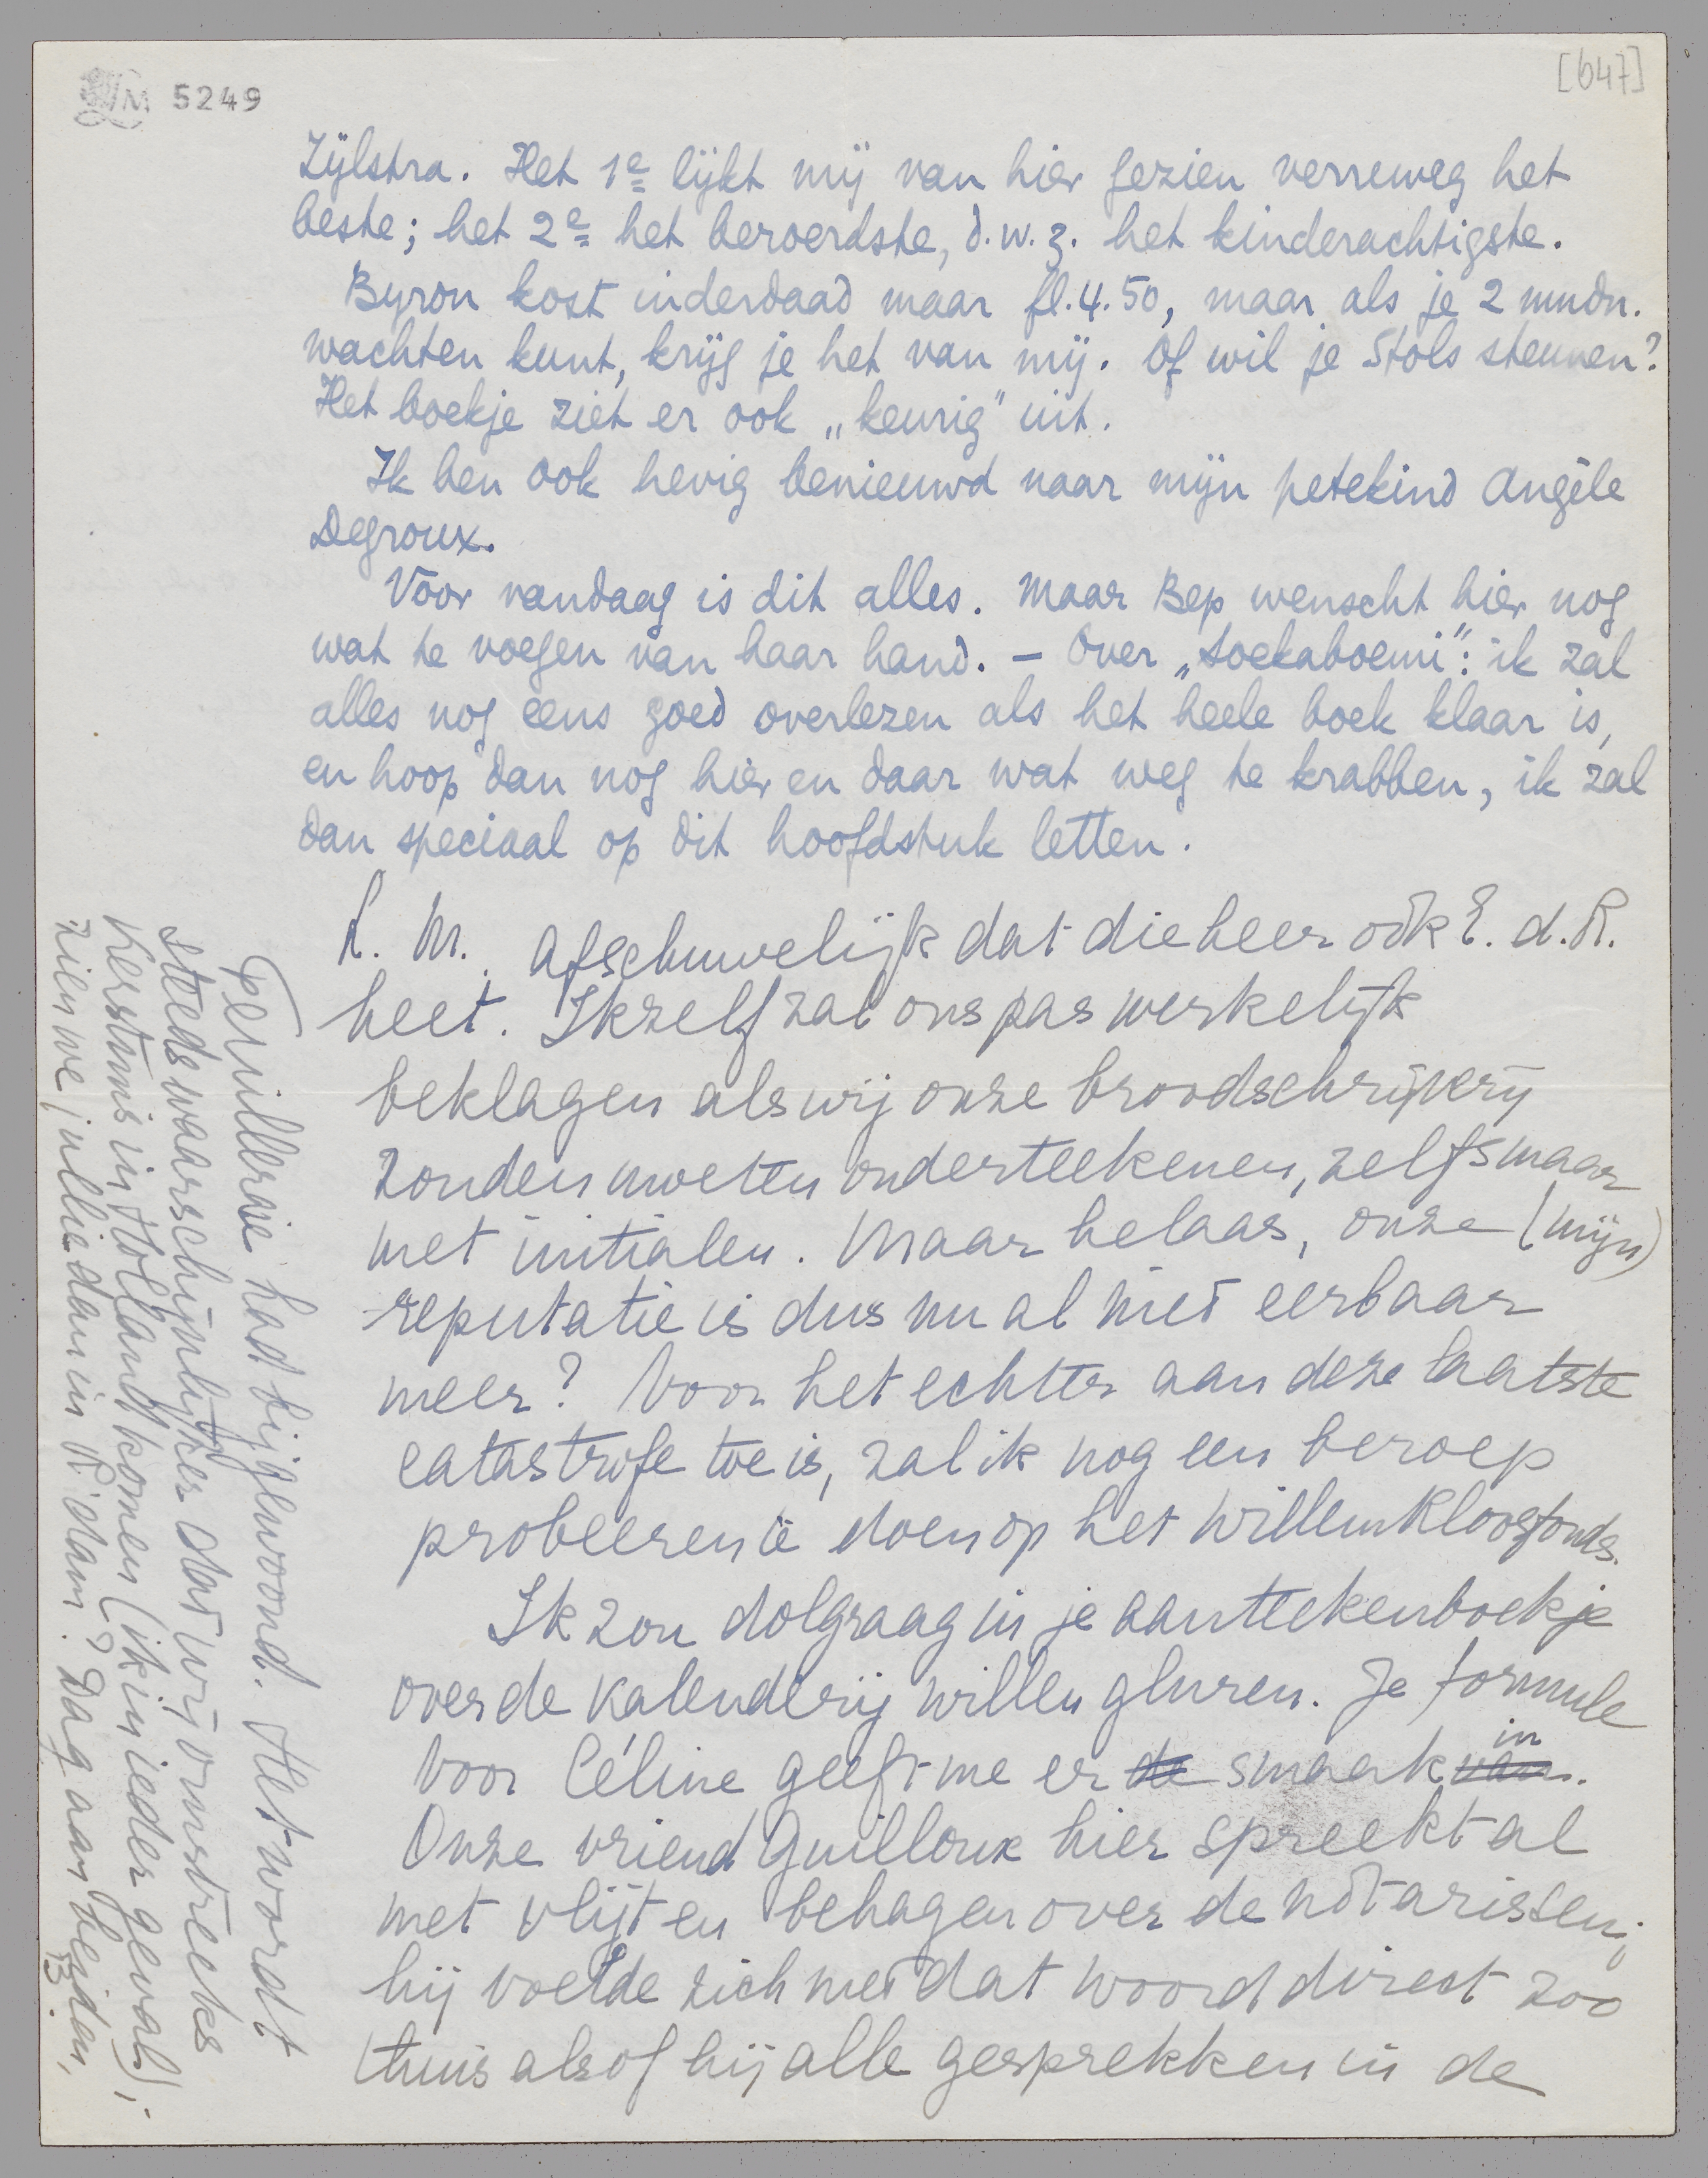 LM 5249
[647]
Zijlstra. Het 1e lijkt mij van hier gezien verreweg het
beste; het 2e het beroerdste, d.w.z. het kinderachtigste.
Byron kost inderdaad maar fl.4.50, maar als je 2 mndn.
wachten kunt, krijg je het van mij. Of wil je Stols steunen?
Het boekje ziet er ook „keurig" uit.
Ik ben ook hevig benieuwd naar mijn petekind Angèle
Degroux.
Voor vandaag is dit alles. Maar Bep wenscht hier nog
wat te voegen van haar hand. – Over „Soekaboemi": ik zal
alles nog eens goed overlezen als het heele boek klaar is,
en hoop dan nog hier en daar wat weg te krabben, ik zal
dan speciaal op dit hoofdstuk letten.
L. M. Afschuwelijk dat die heer ook E. d. R.
heet. Ikzelf zal ons pas werkelijk
beklagen als wij onze broodschrijverij
zouden moeten onderteekenen, zelfs maar
met initialen. Maar helaas, onze (mijn)
reputatie is dus nu al niet eerbaar
meer? Voor het echter aan deze laatste
catastrofe toe is, zal ik nog een beroep
probeeren te doen op het Willem Kloosfonds.
Ik zou dolgraag in je aanteekenboekje
over de kalenderij willen gluren. Je formule
voor Céline geeft me er de smaak van in.
Onze vriend Guilloux hier spreekt al
met vlijt en behagen over de notarissen;
hij voelde zich met dat woord direct zoo
thuis alsof hij alle gesprekken in de
Feuilleraie had bijgewoond. Het wordt
steeds waarschijnlijker dat wij omstreeks
Kerstmis in Holland komen (ik in ieder geval);
zien we jullie dan in R'dam? Dag aan beiden,
B.